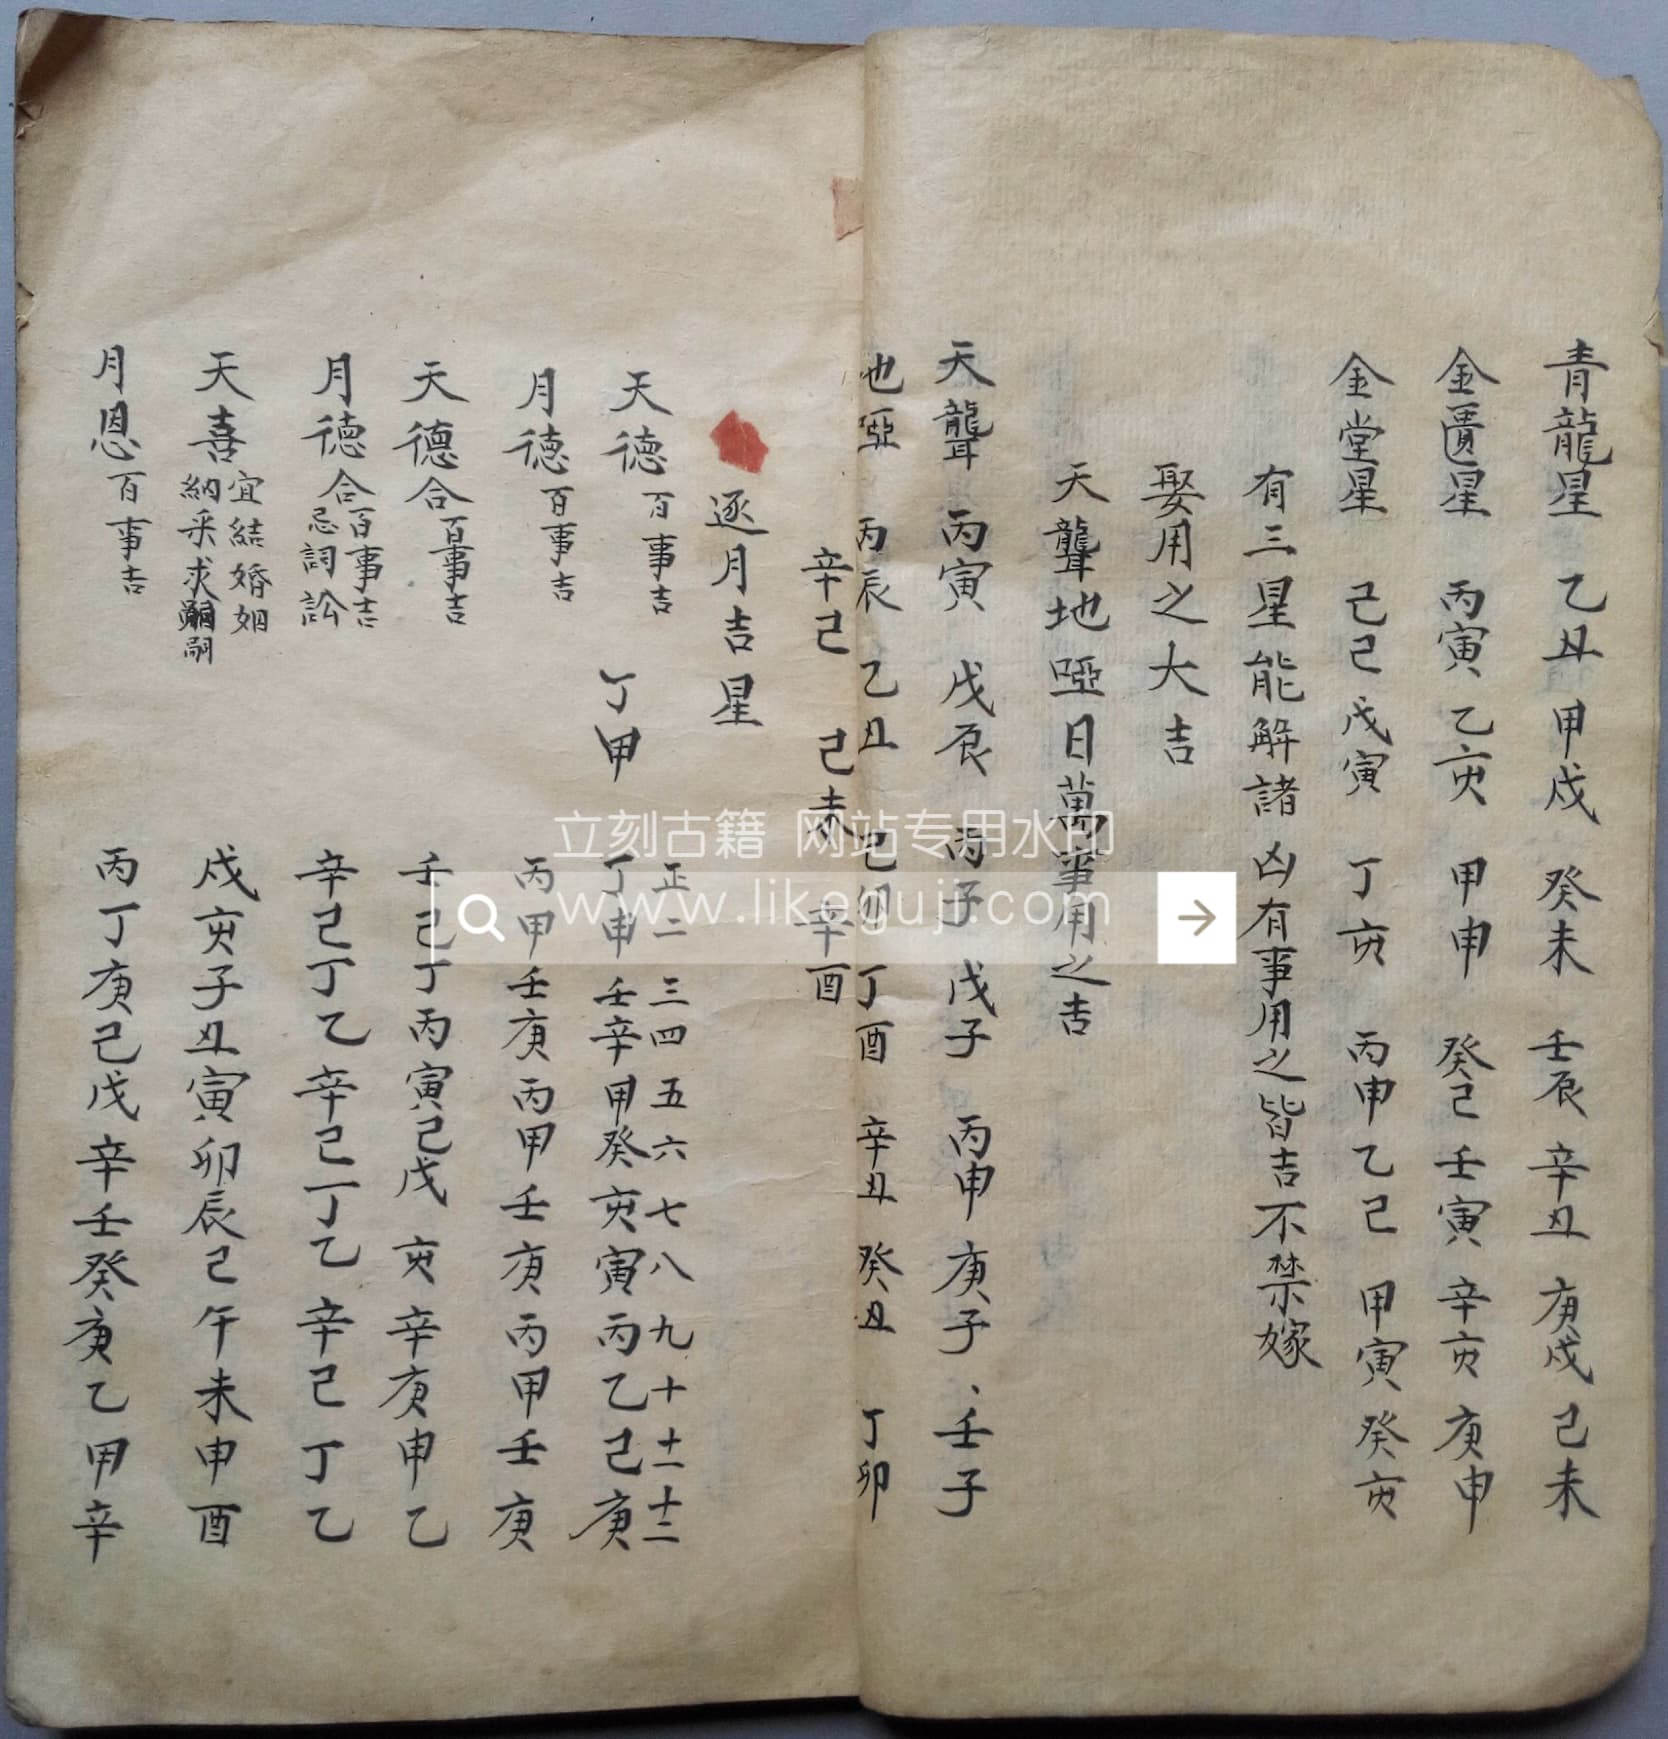 青龍星 乙丑 甲戌 癸未 壬辰 辛丑 庚戌 己未
金匱星 丙寅 乙亥 甲申 癸己 壬寅 辛亥 庚申
金堂星 己己 戊寅 丁亥 丙申 乙己 甲寅 癸亥
有三星能解諸凶有事用之皆吉不禁嫁
娶用之大吉
天聾地啞日萬事用之吉
天聾 丙寅 戊辰 丙子 戊子 丙申 庚子、壬子
地啞 丙辰 乙丑 己卯 丁酉 辛丑 癸丑 丁卯
辛己 己未 辛酉
逐月吉星
正二三四五六七八九十十一十二
天德 百事吉 丁甲 丁申壬辛甲癸亥寅丙乙己庚
月德 百事吉 丙甲壬庚丙甲壬庚丙甲壬庚
天德合 百事吉 壬己丁丙寅己戊亥辛庚申乙
月德合 百事吉 忌詞訟 辛己丁乙辛己丁乙辛己丁乙
天喜 宜結婚姻 納采求嗣 戌亥子丑寅卯辰己午未申酉
月恩 百事吉 丙丁庚己戊辛壬癸庚乙甲辛
立刻古籍 网站专用水印
www.likeguji.com